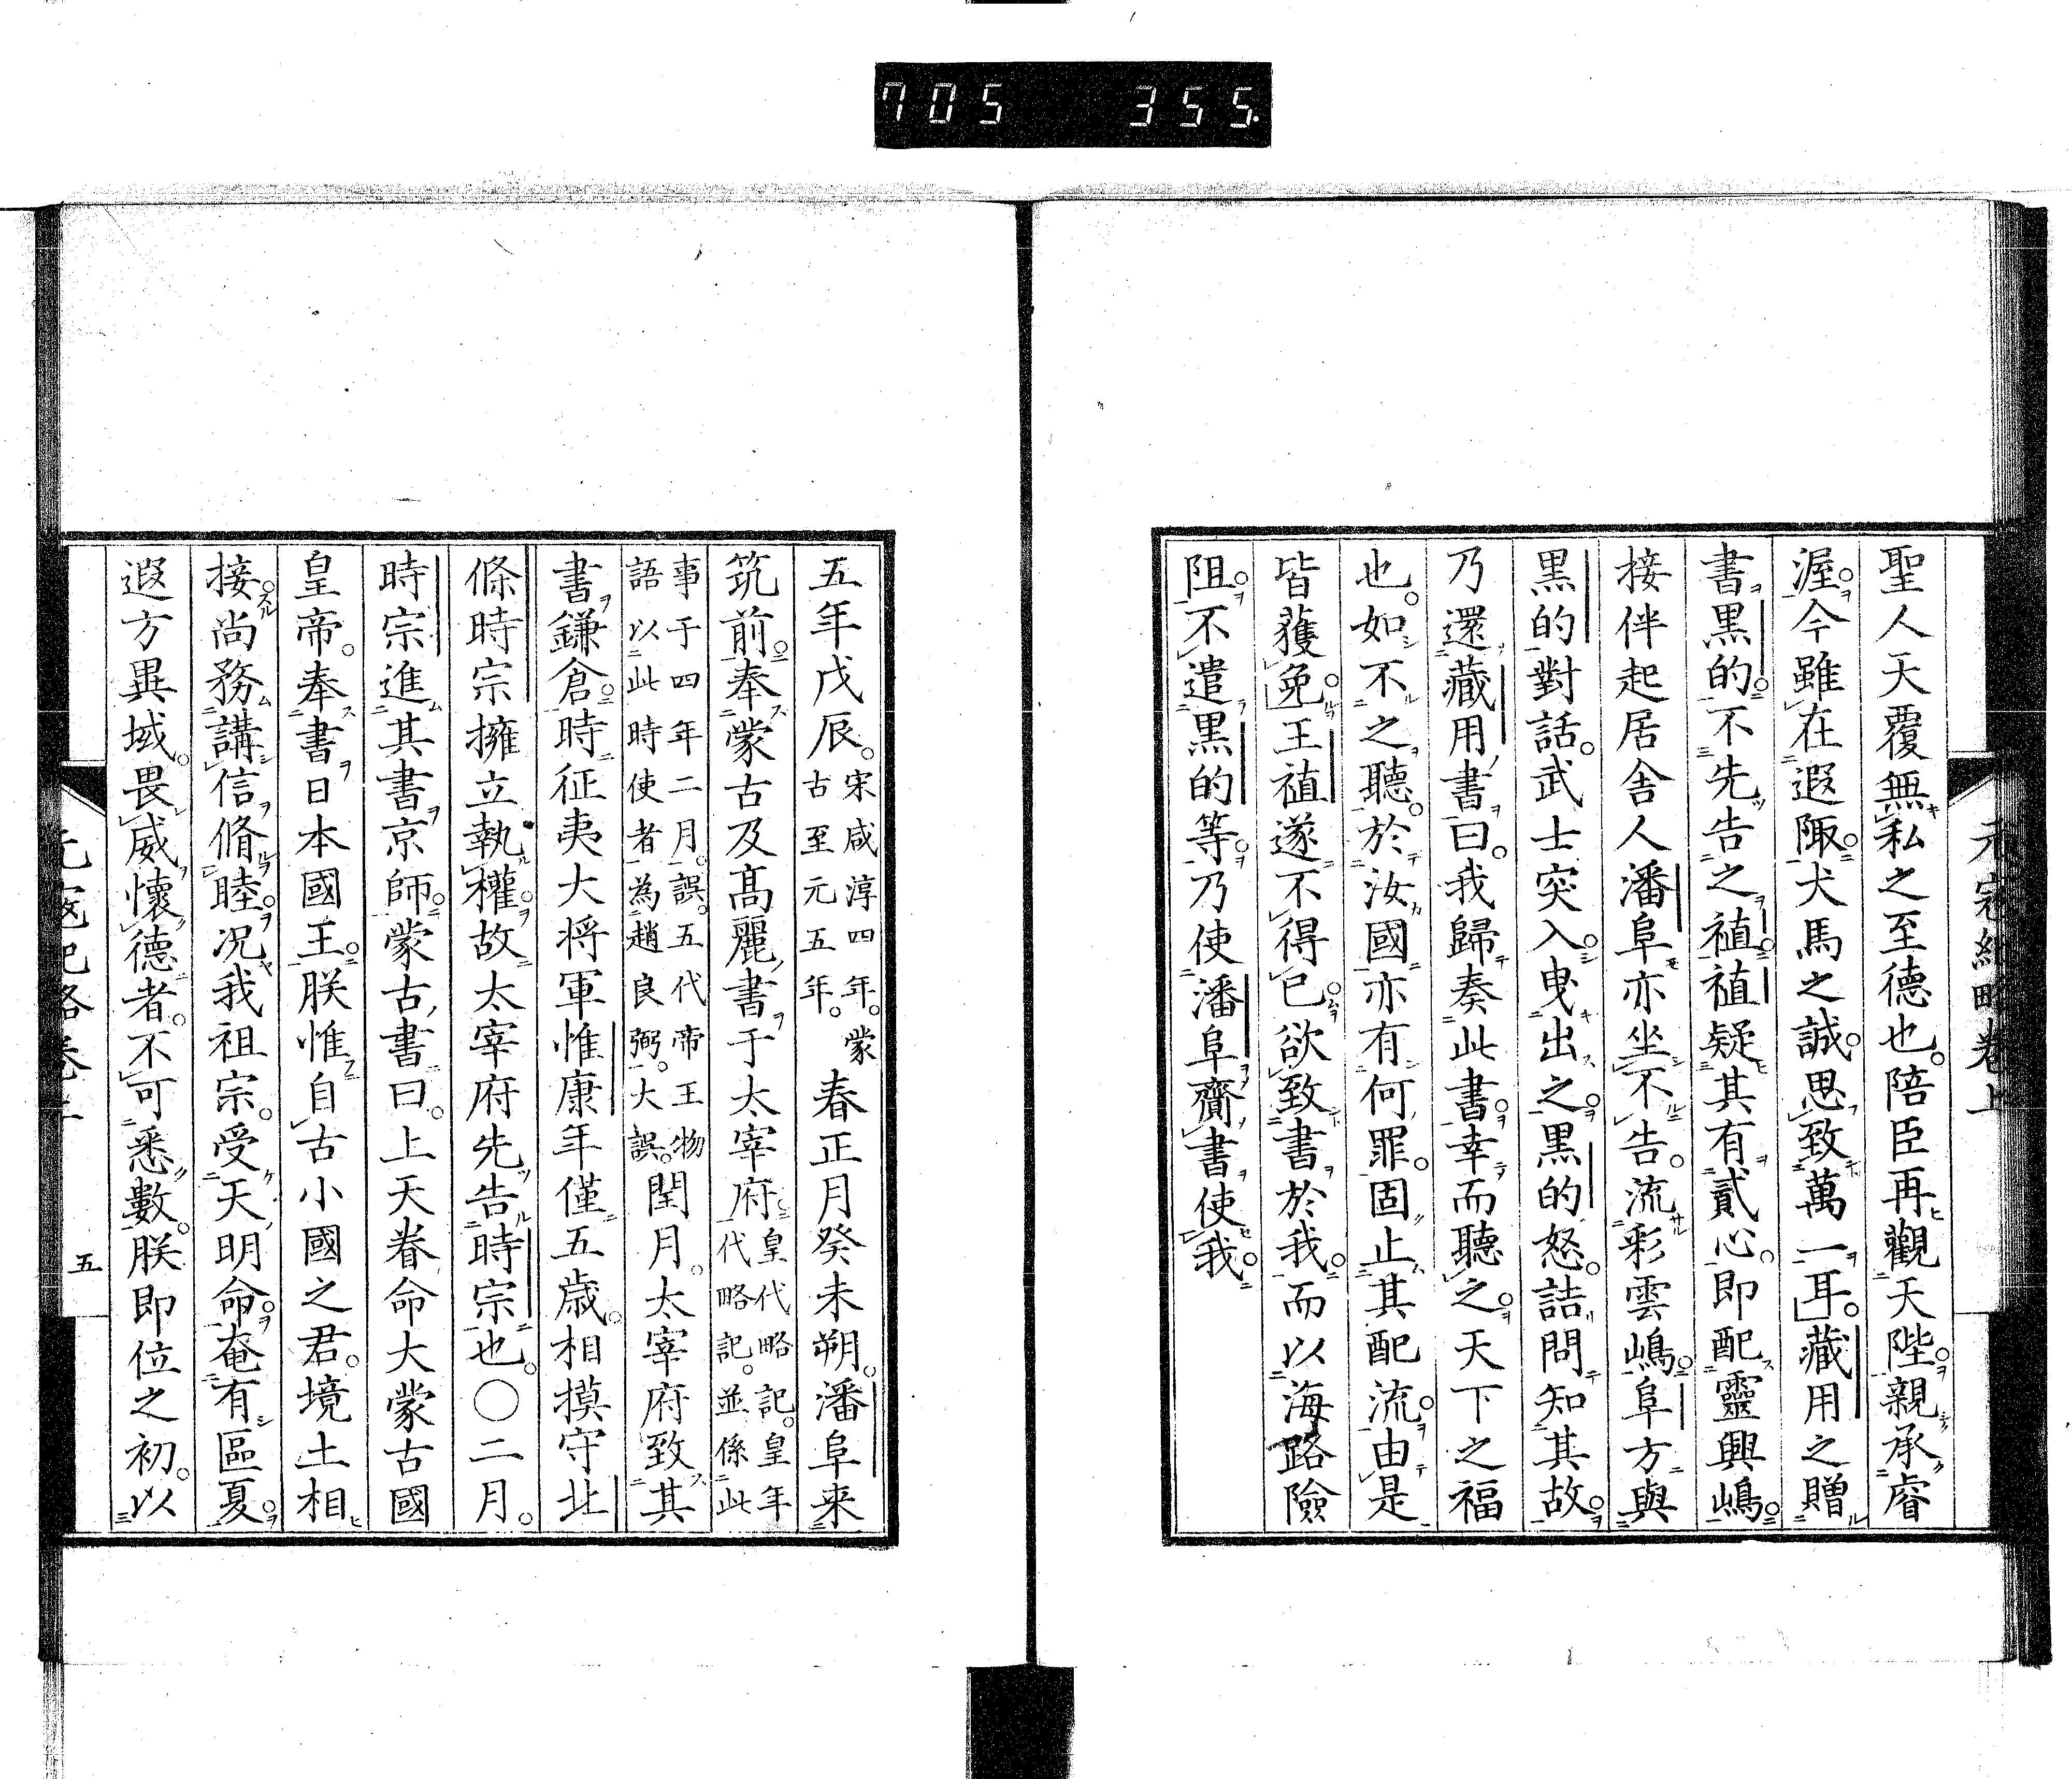 705 355
元寇紀略卷上
聖人天覆無私之至德也。陪臣再觀天陛。親承睿
渥。今雖在遐陬。犬馬之誠。思致萬一耳。藏用之贈
書黒的。不先告之禃。禃疑其有貳心。即配靈興嶋。
接伴起居舍人潘阜亦坐不告。流彩雲嶋。阜方與
黒的對話。武士突入。曳出之。黒的怒。詰問知其故。
乃還藏用書曰。我歸奏此書。幸而聽之。天下之福
也。如不之聽。於汝國亦有何罪。固止其配流。由是
皆蒦免。王禃遂不得已。欲致書於我。而以海路險
阻。不遣黒的等。乃使潘阜齎書使我。
五年戊辰。宋咸淳四年。蒙古至元五年。春正月癸未朔。潘阜来
筑前。奉蒙古及髙麗書于太宰府皇代略記。皇年代略記。並係此
事于四年二月。誤。五代帝王物語以此時使者為趙良弼。大誤。閏月。太宰府致其
書鎌倉。時征夷大将軍惟康年僅五歳。相摸守北
條時宗擁立執權。故太宰府先告時宗也。〇二月。
時宗進其書京師。蒙古書曰。上天眷命大蒙古國
皇帝。奉書日本國王。朕惟自古小國之君。境土相
接。尚務講信脩睦。况我祖宗。受天明命。奄有區夏。
遐方異域。畏威懷德者。不可悉數。朕即位之初。以
元寇紀略卷上
五